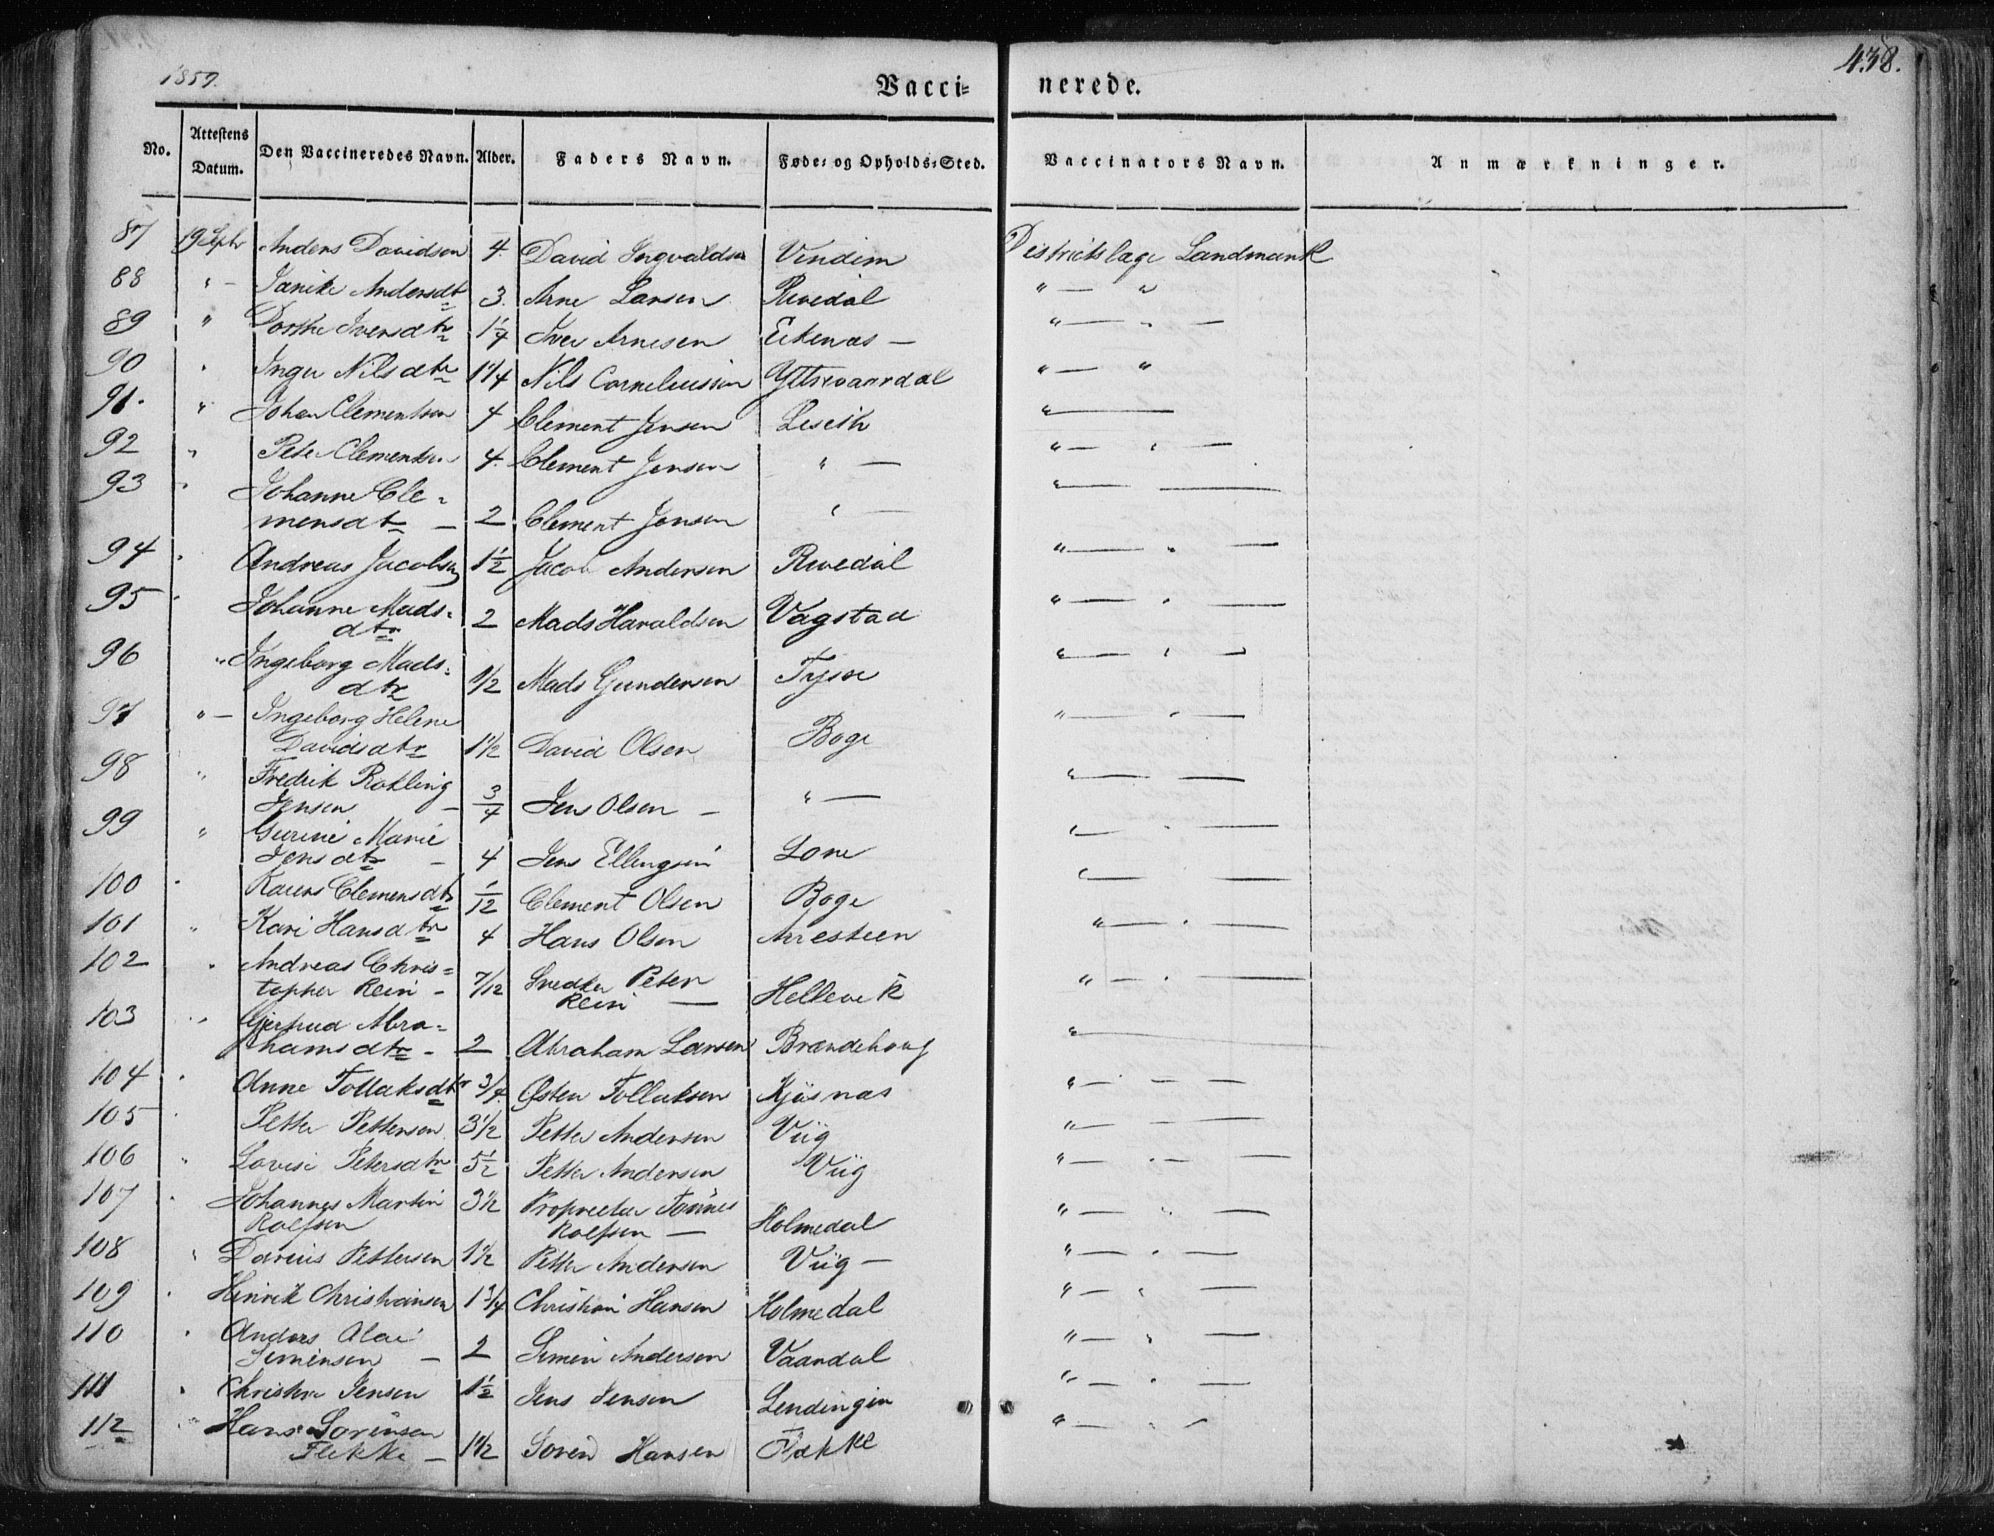 1857.
Vaccinerede.
438.
No. Attestens Datum. Den Vaccineredes Navn. Alder. Faders Navn. Føde- og Opholds-Sted. Vaccinators Navn. Anmærkninger.
87 19 Septr Anders Davidsen 4. David Ingvaldsen Vindim Districtslæge Landmark
88 " — Andersdtr 3. Arne Larsen Rivedal " — "
89 " Dorthe Iversdtr 1 1/4 Iver Arnesen Eikenæs — " — " —
90 " Inger Nilsdtr 1 1/4 Nils Corneliussen Yttrevaardal " — "
91. " Johan Clementsen 4 Clement Jensen Leseth " —
92 " Peter Clementsen 4. Clement Jensen " — " — " —
93 " Johanne Cle-
mensdtr — 2 Clement Jensen " — " — —
94 " Andreas Jacobsen 1 1/2 Jacob Andersen Rivedal " — " —
95 " Johanne Mads-
dtr 2 Mads Haraldsen Vagstad " — " —
96 " Ingeborg Mads-
dtr 1/2 Mads Gundersen Tysse " — " —
97 " — Ingeborg Helene
Davidsdtr 1 1/2 David Olsen Boge " — " —
98 " Fredrik Rohling
Jensen — 3/4 Jens Olsen — " — " — —
99 " Gurine Marie
Jensdtr — 4 Jens Ellingsen Lone " — " —
100 " Clemensdtr 1/12 Clement Olsen Boge " — " —
101 " Kari Hansdtr 4 Hans Olsen Arresteen " — " —
102 " Andreas Chris-
topher Rein — 7/12 Snedker Peter
Rein — Hellevik " — " —
103 " Gjertrud Abra-
hamsdtr — 2 Abraham Larsen Brændehoug " —
104 " Anne Tollaksdtr 3/4. Østen Tollaksen Kjøsnæs " — " —
105 " Petter Pettersen 3 1/2 Petter Andersen Viig " — —
106 " Lovise Petersdtr 5 1/2 Petter Andersen Viig " — " —
107 " Johannes Martin
Rolfsen 3 1/2 Proprietær Tønnes
Rolfsen — Holmedal " — " —
108 " Darius Pettersen 1 1/2 Petter Andersen Viig — " — " —
109 " Hinrik Christiansen 1 3/4 Christian Hansen Holmedal " — " —
110 " Anders Olai
Simensen — 2 Simen Andersen Vaardal " — " —
111 " Jensen 1 1/2 Jens Jensen Lendingen " — " —
112 " Hans Sørensen
Flekke — 1 1/2 Søren Hansen Flekke " — " —